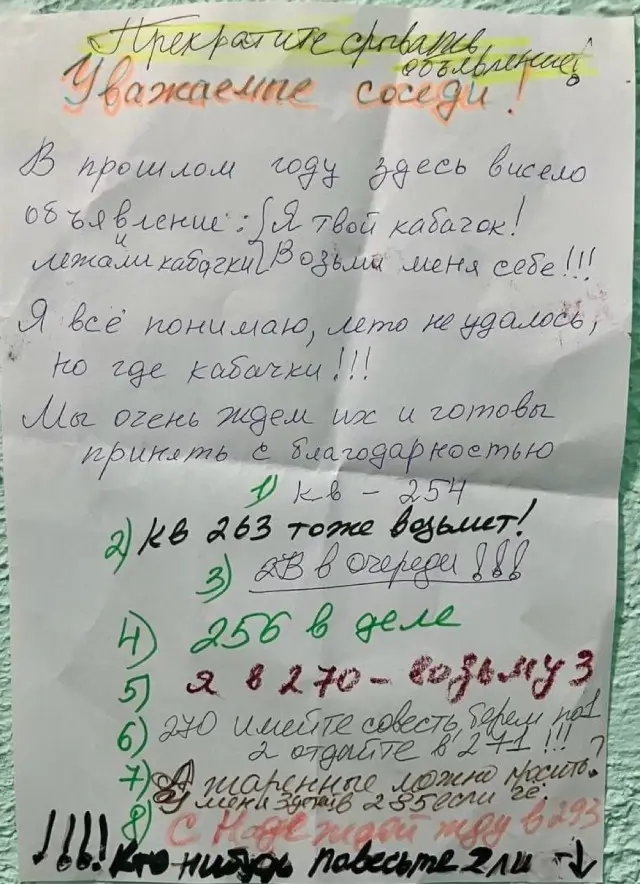 Прекратите срывать
объявление!
Уважаемые соседи!
В прошлом году здесь висело
объявление: Я твой кабачок!
и
лежали кабачки Возьми меня себе!!!
Я всё понимаю, лето не удалось,
но где кабачки!!!
Мы очень ждем их и готовы
принять с благодарностью
1) кв - 254
2) кв 263 тоже возьмет!
3) 2В в очереди!!!
4) 256 в деле
5) я в 270 - возьму 3
6) 270 имейте совесть берем по 1
2 отдайте в 271!!!
7) А жаренные можно просить?
У меня в 295 если чё
8) С Надеждой жду в 293
!!!! Кто нибудь повесьте 2 ли →↓